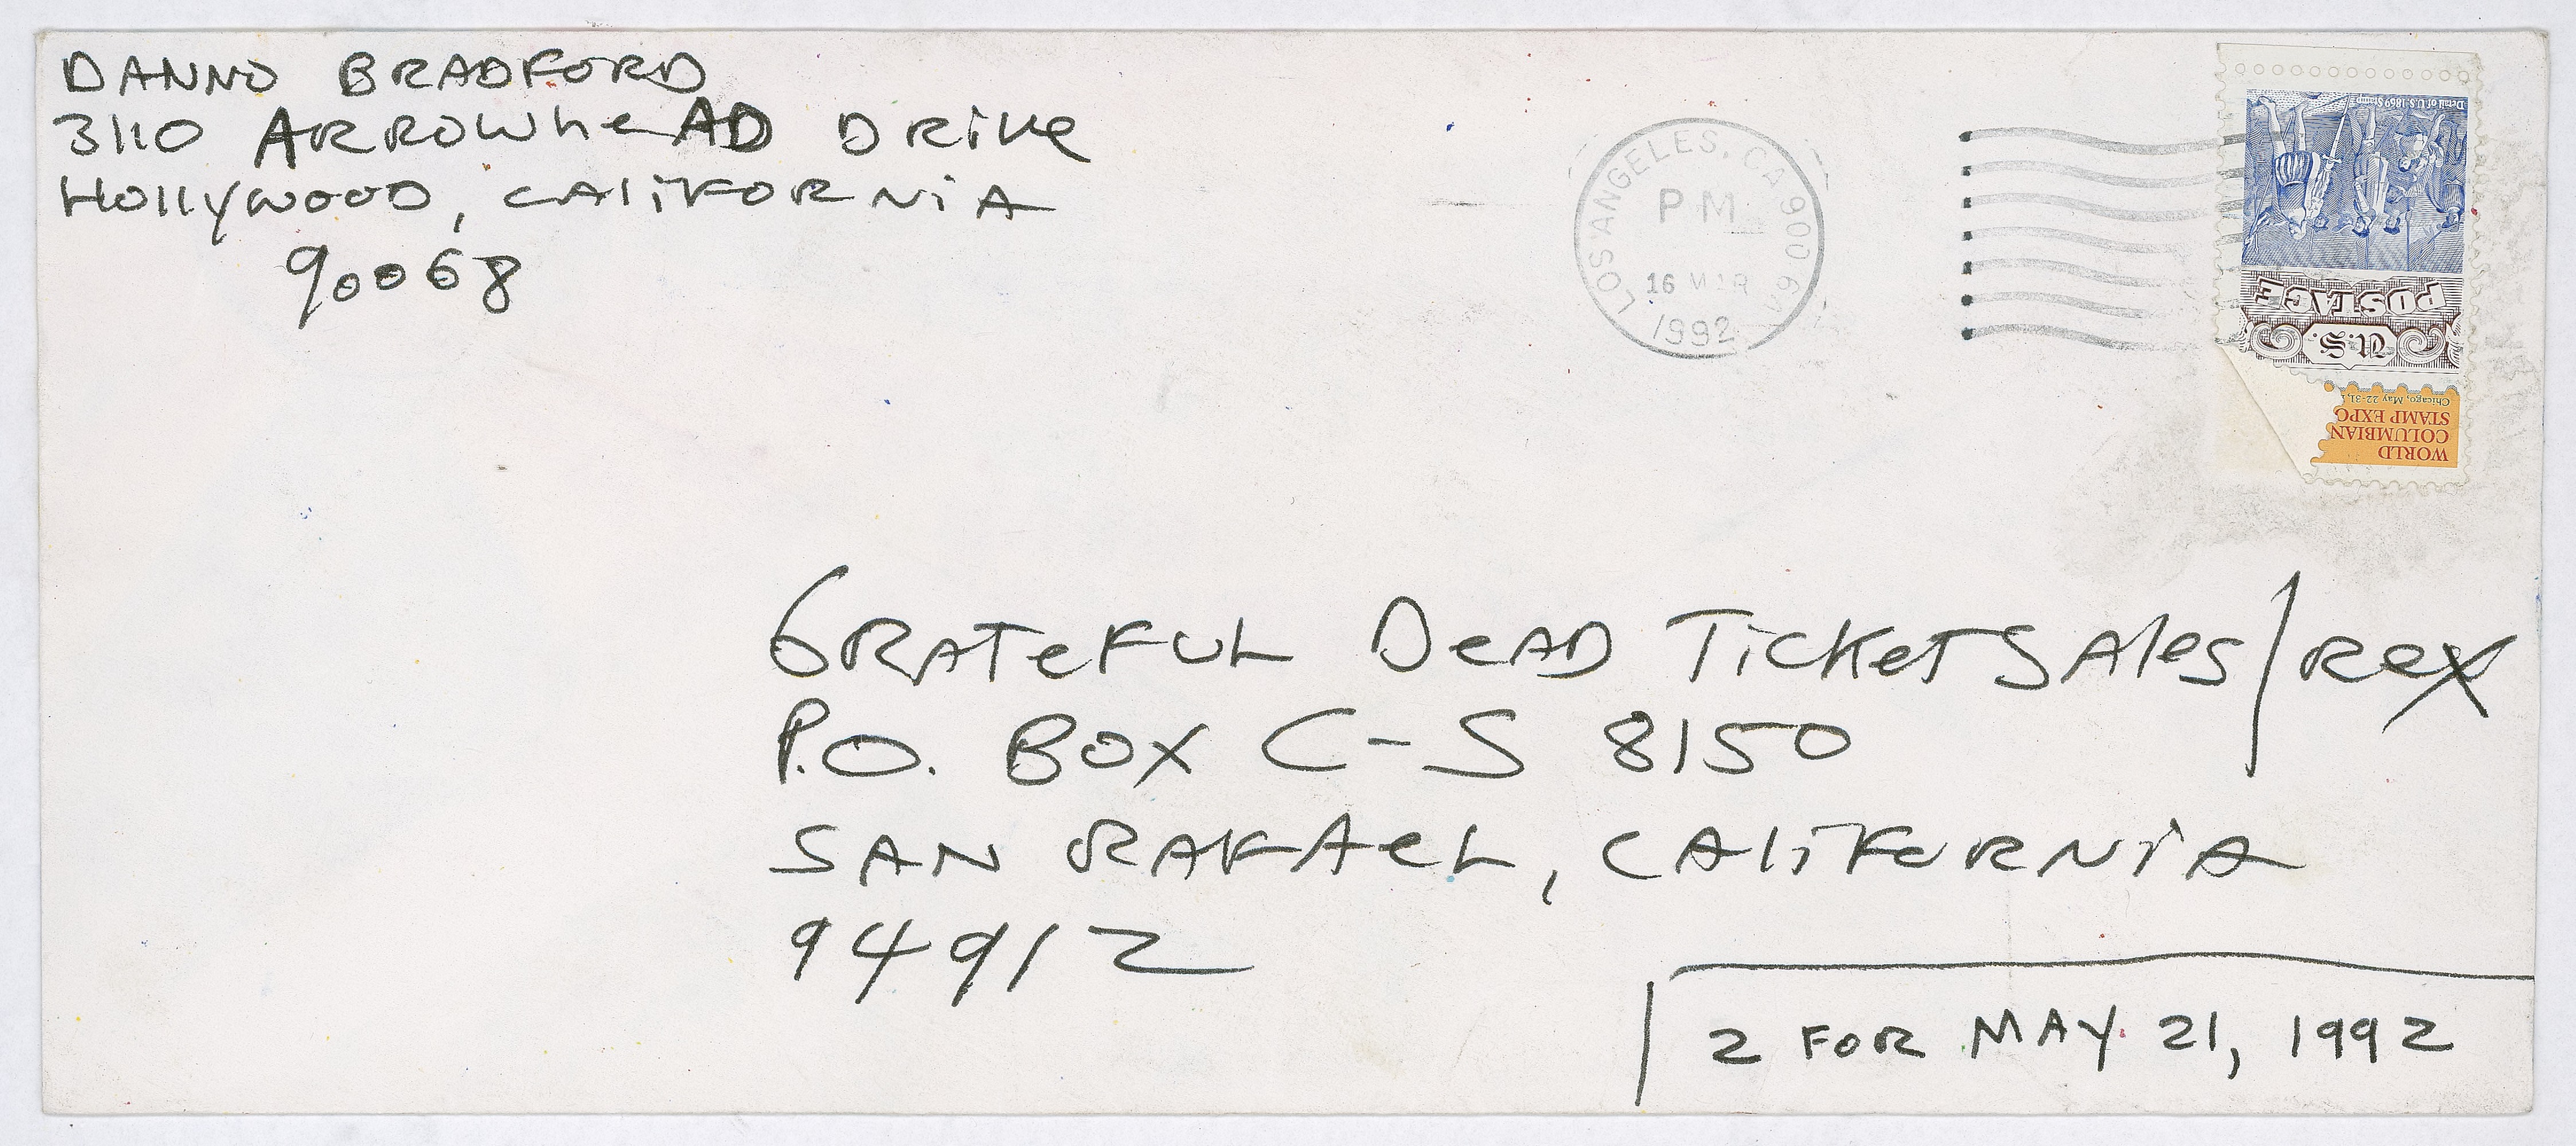 DANNO BRADFORD
3110 ARROWheAD DRiVe
HOllywOOD, CAliFORNiA
90068
LOS ANGELES, CA 900
PM
16 MAR
1992
Detail of U.S. 1869 Stamp
POSTAGE
U.S.
Chicago, May 22-31,
STAMP EXPO
COLUMBIAN
WORLD
GRATeFUL DeAD TicKeT SAles/Rex
P.O. BOX C-S 8150
SAN RAFAeL, CAliFORNiA
94912
2 FOR MAY 21, 1992